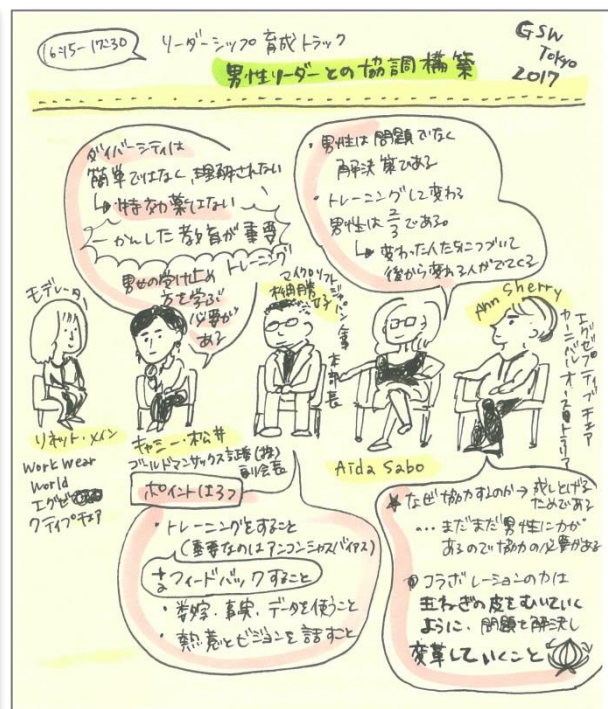 16:15-17:30
リーダーシップ育成トラック
男性リーダーとの協調構築
GSW
Tokyo
2017
ダイバーシティは
簡単ではなく、理解されない
↳特効薬はない
一かんした教育が重要
トレーニング
男性の受け止め
方を学ぶ
必要が
ある
・男性は問題でなく
解決策である
・トレーニングして変わる
男性は2/3である。
↳変わった人たちにつづいて
後から変わる人がでてくる
モデレータ
リネット・メイン
Work Wear
World
エグゼ
クティブ・チェア
キャシー・松井
ゴールドマンサックス証券(株)
副会長
マイクロソフト
ジャパン
本部長
Aida Sabo
Ann Sherry
エグゼクティブチェア
カーニバルオーストラリア
ポイントは3つ
・トレーニングをすること
(重要なのはアンコンシャスバイアス)
フィードバックすること
・数字、事実、データを使うこと
・熱意とビジョンを話すこと
なぜ協力するのか→成しとげる
ためである
…まだまだ男性に力が
あるので協力の必要がある
コラボレーションの力は
玉ねぎの皮をむいていく
ように、問題を解決し
変革していくこと